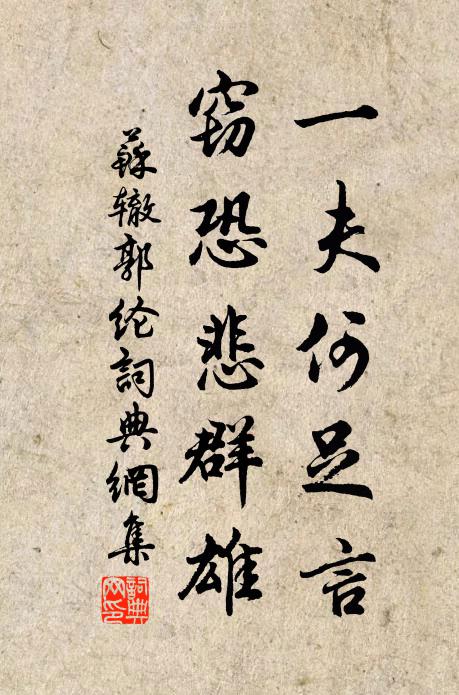 一夫何足言
窃恐悲群雄
蘇辙郭纶詞典網集
詞典网印